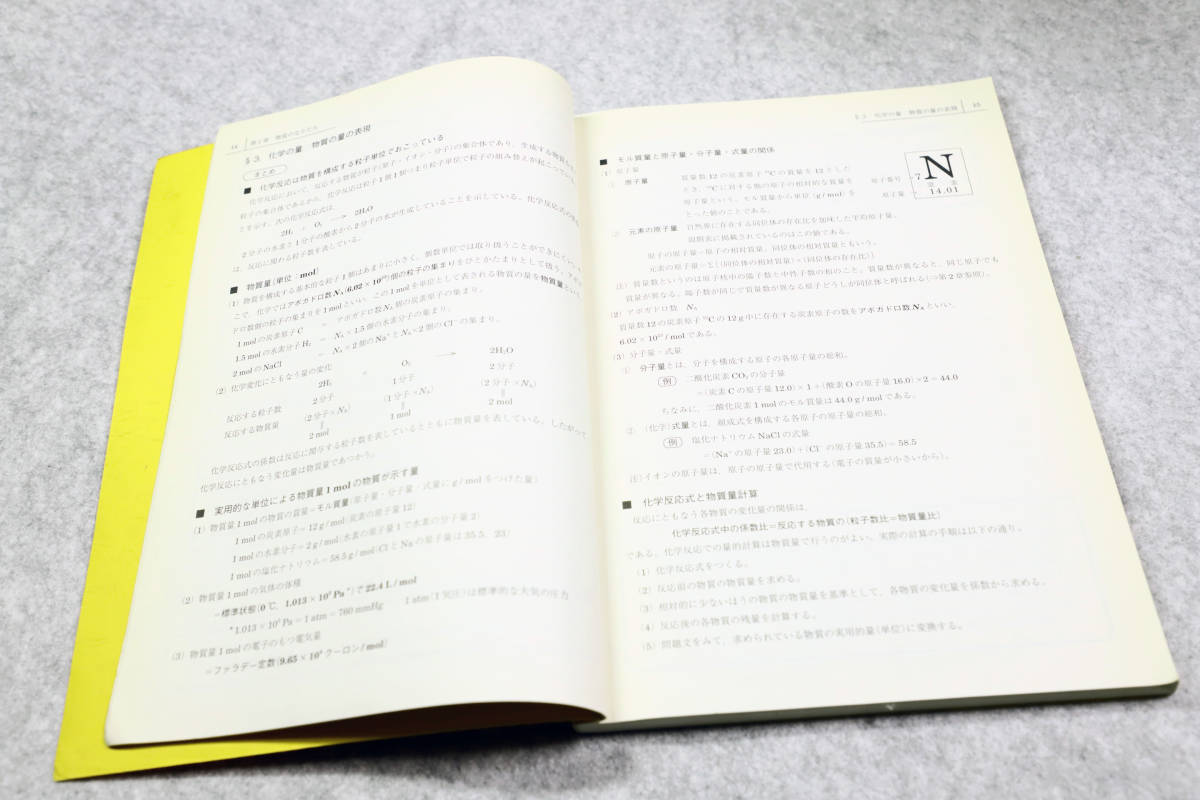 §3. 化学の量 物質の量の表現
まとめ
■ 化学反応は物質を構成する粒子単位でおこっている
化学反応において,反応する物質が粒子(原子・イオン・分子)の集合体であり,生成する物質も
粒子の集合体であるから,化学反応は粒子1個1個つまり粒子単位で粒子の組み替えが起こってい
とを示す。次の化学反応式は,
2H₂ + O₂ → 2H₂O
2分子の水素と1分子の酸素から2分子の水が生成していることを示している。化学反応式の
は,反応に関わる粒子数を表している。
■ 物質量(単位:mol)
(1) 物質を構成する基本的な粒子1個はあまりに小さく,個数単位では取り扱うことができにくい。
こで,化学ではアボガドロ数N_A(6.02×10²³)個の粒子の集まりをひとかたまりとして扱う。アボ
ドロ数個の粒子の集まりを1molといい,この1molを単位として表される物質の量を物質量という。
1molの炭素原子C = アボガドロ数N_A個の炭素原子の集まり。
1.5molの水素分子H₂ = N_A×1.5個の水素分子の集まり。
2molのNaCl = N_A×2個のNa⁺とN_A×2個のCl⁻の集まり。
(2) 化学変化にともなう量の変化
2H₂ + O₂ → 2H₂O
反応する粒子数 2分子 1分子 2分子
反応する物質量 (2分子×N_A) (1分子×N_A) (2分子×N_A)
∥ ∥ ∥
2mol 1mol 2mol
化学反応式の係数は反応に関与する粒子数を表しているとともに物質量を表している。したがって
化学反応にともなう変化量は物質量であつかう。
■ 実用的な単位による物質量1molの物質が示す量
(1) 物質量1molの物質の質量=モル質量(原子量・分子量・式量にg/molをつけた量)
1molの炭素原子=12g/mol(炭素の原子量12)
1molの水素分子=2g/mol(水素の原子量1で水素の分子量2)
1molの塩化ナトリウム=58.5g/mol(ClとNaの原子量は35.5,23)
(2) 物質量1molの気体の体積
=標準状態(0℃,1.013×10⁵Pa*)で22.4L/mol
*1.013×10⁵Pa=1atm=760mmHg 1atm(1気圧)は標準的な大気の圧力
(3) 物質量1molの電子のもつ電気量
=ファラデー定数(9.65×10⁴クーロン/mol)
§3. 化学の量 物質の量の表現
■ モル質量と原子量・分子量・式量の関係
(1) 原子量
① 原子量 質量数12の炭素原子¹²Cの質量を12とした
とき,¹²Cに対する他の原子の相対的な質量を
原子量という。モル質量から単位(g/mol)を
とった値のことである。
原子番号 7 N
窒素
原子量 14.01
② 元素の原子量 自然界に存在する同位体の存在比を加味した平均原子量。
周期表に掲載されているのはこの値である。
原子の原子量=原子の相対質量。同位体の相対質量ともいう。
元素の原子量=Σ{(同位体の相対質量)×(同位体の存在比)}
注) 質量数というのは原子核中の陽子数と中性子数の和のこと。質量数が異なると,同じ原子でも
質量が異なる。陽子数が同じで質量数が異なる原子どうしが同位体と呼ばれる(⇒第2章§原)。
(2) アボガドロ数 N_A
質量数12の炭素原子¹²Cの12g中に存在する炭素原子の数をアボガドロ数N_Aといい,
6.02×10²³/molである。
(3) 分子量・式量
① 分子量とは,分子を構成する原子の各原子量の総和。
例 二酸化炭素CO₂の分子量
=(炭素Cの原子量12.0)×1+(酸素Oの原子量16.0)×2=44.0
ちなみに,二酸化炭素1molのモル質量は44.0g/molである。
② (化学)式量とは,組成式を構成する各原子の原子量の総和。
例 塩化ナトリウムNaClの式量
=(Na⁺の原子量23.0)+(Cl⁻の原子量35.5)=58.5
注) イオンの原子量は,原子の原子量で代用する(電子の質量が小さいから)。
■ 化学反応式と物質量計算
反応にともなう各物質の変化量の関係は,
化学反応式中の係数比=反応する物質の(粒子数比=物質量比)
である。化学反応での量的計算は物質量で行うのがよい。実際の計算の手順は以下の通り。
(1) 化学反応式をつくる。
(2) 反応前の物質の物質量を求める。
(3) 相対的に少ないほうの物質の物質量を基準として,各物質の変化量を係数から求める。
(4) 反応後の各物質の残量を計算する。
(5) 問題文をみて,求められている物質の実用的量(単位)に変換する。